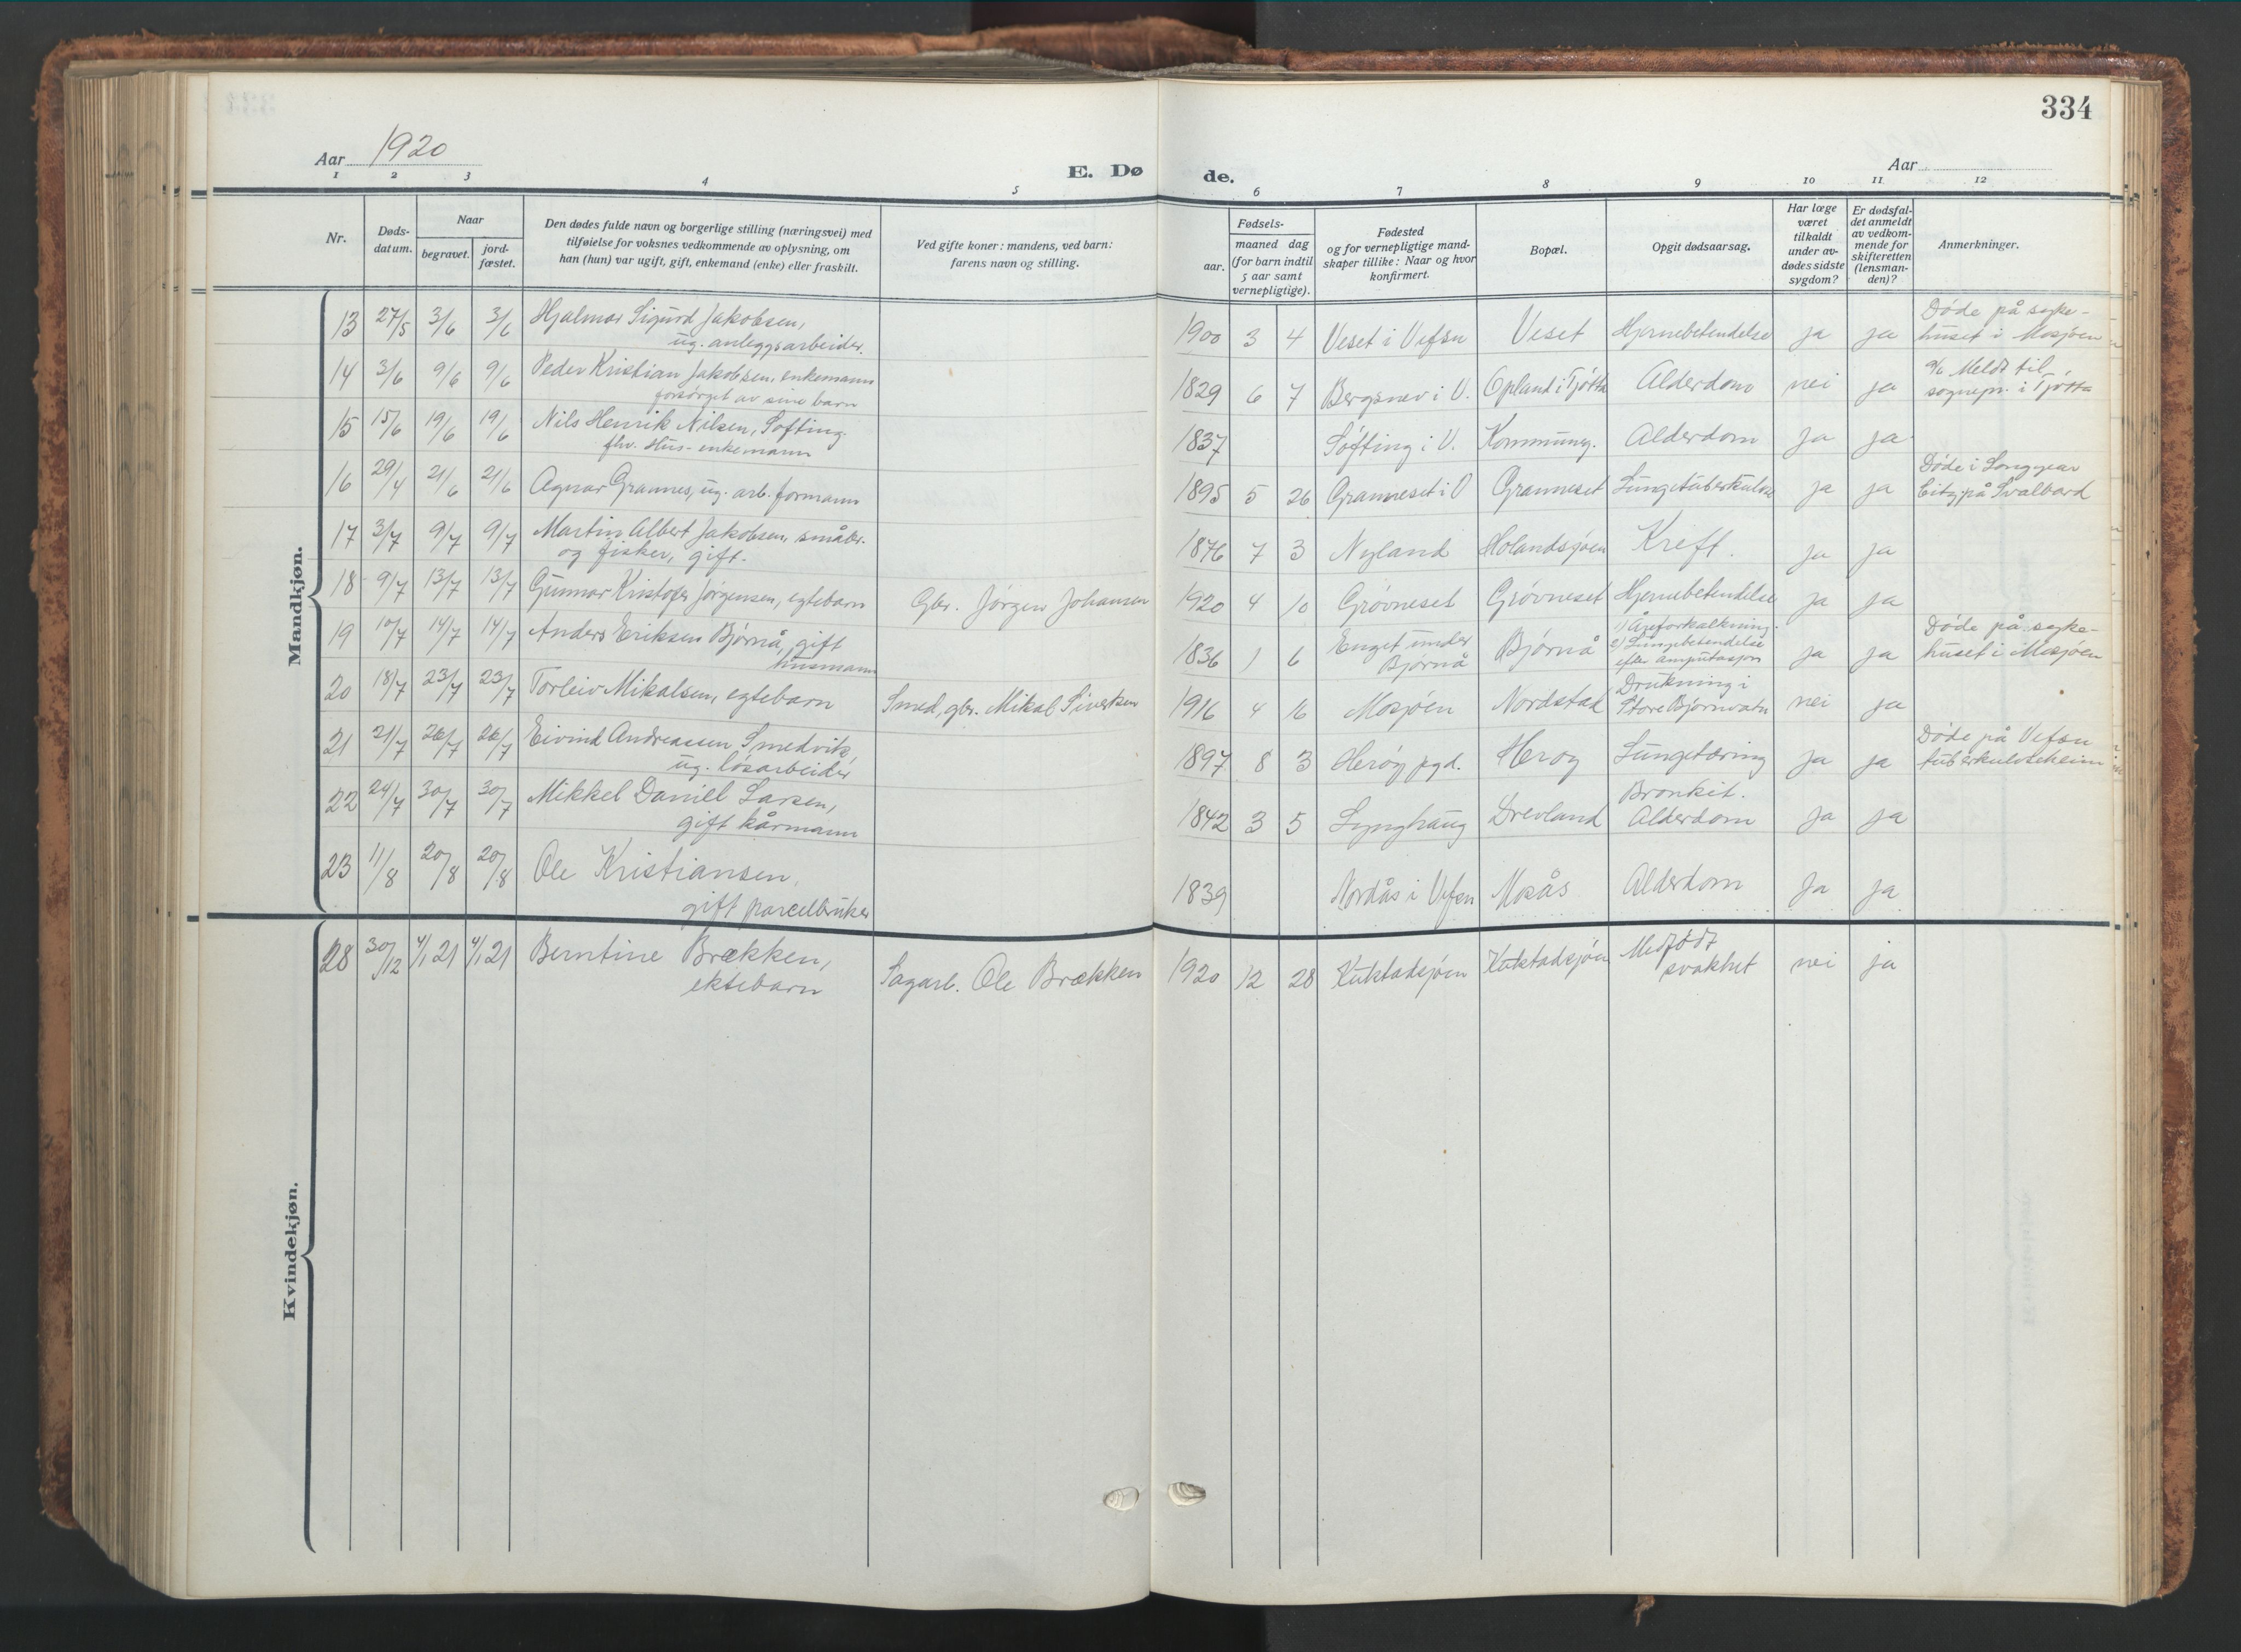 334
Aar 1920
E. Dø
de.
Aar
1 2 3 4 5 6 7 8 9 10 11 12
Nr.
Døds-
datum.
Naar
begravet.
jord-
fæstet.
Den dødes fulde navn og borgerlige stilling (næringsvei) med
tilføielse for voksnes vedkommende av oplysning, om
han (hun) var ugift, gift, enkemand (enke) eller fraskilt.
Ved gifte koner: mandens, ved barn:
farens navn og stilling.
Fødsels-
aar.
maaned dag
(for barn indtil
5 aar samt
vernepligtige).
Fødested
og for vernepligtige mand-
skaper tillike: Naar og hvor
konfirmert.
Bopæl.
Opgit dødsaarsag.
Har læge
været
tilkaldt
under av-
dødes sidste
sygdom?
Er dødsfal-
det anmeldt
av vedkom-
mende for
skifteretten
(lensman-
den)?
Anmerkninger.
Mandkjøn.
13 27/5 3/6 3/6 Hjalmar Sigurd Jakobsen,
ug. anleggsarbeider.
1900 3 4 Veset i Vefsn Veset Hjernebetendelse ja ja
Døde på syke-
huset i Mosjøen
14 3/6 9/6 9/6 Peder Kristian Jakobsen, enkemann
forsørget av sine barn
1829 6 7 Bergsnev i V. Opland i Tjøtta Alderdom nei ja
Meldt til
sognepr. i Tjøtta
15 15/6 19/6 19/6 Nils Henrik Nilsen, Søfting.
fhv. Hus- enkemann
1837 Søfting i V. Kommuneg. Alderdom Ja ja
16 29/4 21/6 21/6 Agnar Grannes, ug. arb. formann
1895 5 26 Granneset i V Granneset Lungetuberkulose ja ja
Døde i Longyear
City på Svalbard
17 3/7 9/7 9/7 Martin Albert Jakobsen, småbr.
og fisker, gift.
1876 7 3 Nyland Holandsjøen Kreft. ja ja
18 9/7 13/7 13/7 Gunnar Kristofer Jørgensen, egtebarn Gbr. Jørgen Johansen
1920 4 10 Grøvneset Grøvneset Hjernebetendelse ja ja
19 10/7 14/7 14/7 Anders Eriksen Bjørnå, gift
husmann
1836 1 6 Enget under
Bjørnå
Bjørnå
1) Åreforkalkning.
2) Lungebetendelse
efter amputasjon
ja ja
Døde på syke-
huset i Mosjøen
20 18/7 23/7 23/7 Torleiv Mikalsen, egtebarn Smed, gbr. Mikal Sivertsen
1916 4 16 Mosjøen Nordstad
Drukning i
Store Bjørnvatn
nei ja
21 21/7 26/7 26/7 Eivind Andreassen Smedvik,
ug. løsarbeider
1897 8 3 Herøy pgd. Herøy Lungetæring ja ja
Døde på Vefsn
tuberkuloseheim
22 24/7 30/7 30/7 Mikkel Daniel Larsen,
gift kårmann
1842 3 5 Lynghaug Drevland
Bronkit.
Alderdom
Ja ja
23 11/8 20/8 20/8 Ole Kristiansen,
gift parcelbruker
1839 Nordås i Vefsn Mosås Alderdom Ja ja
Kvindekjøn.
28 30/12 4/1 21 4/1 21 Berntine Brækken,
ektebarn
Sagarb. Ole Brækken
1920 12 28 Kulstadsjøen Kulstadsjøen
Medfødt
svakhet
nei ja